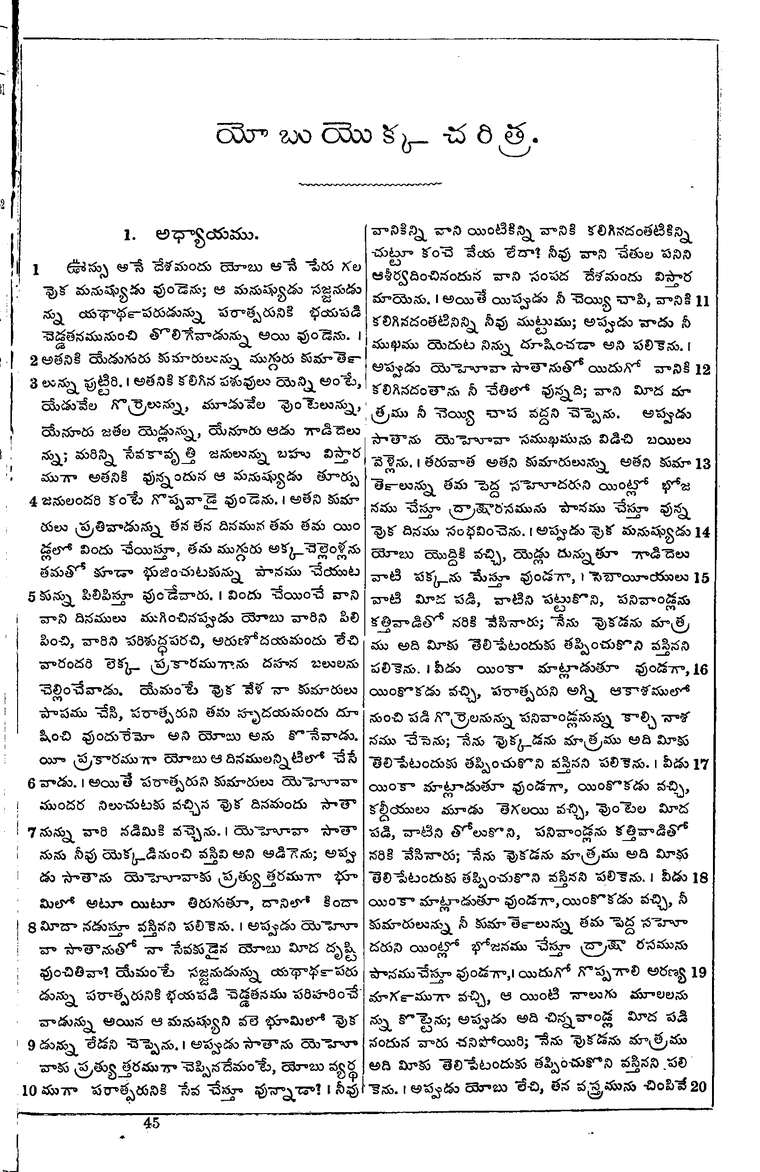 యోబుయొక్క చరిత్ర.
1. అధ్యాయము.
1 ఊన్సు అనే దేశమందు యోబు అనే పేరు గల
వుక మనుష్యుడు వుండెను; ఆ మనుష్యుడు సజ్జనుడు
న్ను యథార్థపరుడున్ను పరాత్పరునికి భయపడి
చెడ్డతనమునుంచి తొలిగేవాడున్ను అయి వుండెను. ।
2 అతనికి యేడుగురు కుమారులున్ను ముగ్గురు కుమార్తె
3 లున్ను పుట్టిరి. । అతనికి కలిగిన పశువులు యేన్ని అంటే,
యేడువేల గొర్రెలున్ను, మూడువేల వుంటెలున్ను,
యేనూరు జతల యెడ్లున్ను, యేనూరు ఆడు గాడిదెలు
న్ను; మరిన్ని సేవకావృత్తి జనులున్ను బహు విస్తార
ముగా అతనికి వున్నందున ఆ మనుష్యుడు తూర్పు
4 జనులందరి కంటే గొప్పవాడై వుండెను. । అతని కుమా
రులు ప్రతివాడున్ను తన తన దినమున తమ తమ యిం
డ్లలో విందు చేయిస్తూ, తమ ముగ్గురు అక్కచెల్లెండ్లను
తమతో కూడా భుజించుటకున్ను పానము చేయుట
5 కున్ను పిలిపిస్తూ వుండేవారు. । విందు చేయించే వాని
వాని దినములు ముగించినప్పుడు యోబు వారిని పిలి
పించి, వారిని పరిశుద్ధపరచి, అరుణోదయమందు లేచి
వారందరి లెక్క ప్రకారముగాను దహన బలులను
చెల్లించేవాడు. యేమంటే వుక వేళ నా కుమారులు
పాపము చేసి, పరాత్పరుని తమ హృదయమందు దూ
షించి వుందురేమో అని యోబు అను కొనేవాడు.
యీ ప్రకారముగా యోబు ఆ దినములన్నిటిలో చేసే
6 వాడు. । అయితే పరాత్పరుని కుమారులు యెహోవా
ముందర నిలుచుటకు వచ్చిన వుక దినమందు సాతా
7 నున్ను వారి నడిమికి వచ్చెను. । యెహోవా సాతా
నును నీవు యెక్కడినుంచి వస్తివి అని అడిగెను; అప్పు
డు సాతాను యెహోవాకు ప్రత్యుత్తరముగా భూ
మిలో అటూ యిటూ తిరుగుతూ, దానిలో కిందా
8 మీదా నడుస్తూ వస్తినని పలికెను. । అప్పుడు యెహో
వా సాతానుతో నా సేవకుడైన యోబు మీద దృష్టి
వుంచితివా? యేమంటే సజ్జనుడున్ను యథార్థపరు
డున్ను పరాత్పరునికి భయపడి చెడ్డతనము పరిహరించే
వాడున్ను అయిన ఆ మనుష్యుని వలె భూమిలో వుక
9 డున్ను లేడని చెప్పెను. । అప్పుడు సాతాను యెహో
వాకు ప్రత్యుత్తరముగా చెప్పినదేమంటే, యోబు వ్యర్థ
10 ముగా పరాత్పరునికి సేవ చేస్తూ వున్నాడా? । నీవు
వానికిన్ని వాని యింటికిన్ని వానికి కలిగినదంతటికిన్ని
చుట్టూ కంచె వేయ లేదా? నీవు వాని చేతుల పనిని
ఆశీర్వదించినందున వాని సంపద దేశమందు విస్తార
మాయెను. । అయితే యిప్పుడు నీ చెయ్యి చాపి, వానికి 11
కలిగినదంతటినిన్ని నీవు ముట్టుము; అప్పుడు వాడు నీ
ముఖము యెదుట నిన్ను దూషించడా అని పలికెను. ।
అప్పుడు యెహోవా సాతానుతో యిదుగో వానికి 12
కలిగినదంతాను నీ చేతిలో వున్నది; వాని మీద మా
త్రము నీ చెయ్యి చాప వద్దని చెప్పెను. అప్పుడు
సాతాను యెహోవా సముఖమును విడిచి బయిలు
వెళ్లెను. । తరువాత అతని కుమారులున్ను అతని కుమా 13
ర్తెలున్ను తమ పెద్ద సహోదరుని యింట్లో భోజ
నము చేస్తూ ద్రాక్షారసమును పానము చేస్తూ వున్న
వుక దినము సంభవించెను. । అప్పుడు వుక మనుష్యుడు 14
యోబు యొద్దికి వచ్చి, యెడ్లు దున్నుతూ గాడిదెలు
వాటి పక్కను మేస్తూ వుండగా, । సెబాయీయులు 15
వాటి మీద పడి, వాటిని పట్టుకొని, పనివాండ్లను
కత్తివాడితో నరికి వేసినారు; నేను వుకడను మాత్ర
ము అది మీకు తెలిపేటందుకు తప్పించుకొని వస్తినని
పలికెను. । వీడు యింకా మాట్లాడుతూ వుండగా, 16
యింకొకడు వచ్చి, పరాత్పరుని అగ్ని ఆకాశములో
నుంచి పడి గొర్రెలనున్ను పనివాండ్లనున్ను కాల్చి నాశ
నము చేసెను; నేను వుక్కడను మాత్రము అది మీకు
తెలిపేటందుకు తప్పించుకొని వస్తినని పలికెను. । వీడు 17
యింకా మాట్లాడుతూ వుండగా, యింకొకడు వచ్చి,
కల్దీయులు మూడు తెగలయి వచ్చి, వుంటెల మీద
పడి, వాటిని తోలుకొని, పనివాండ్లను కత్తివాడితో
నరికి వేసినారు; నేను వుకడను మాత్రము అది మీకు
తెలిపేటందుకు తప్పించుకొని వస్తినని పలికెను. । వీడు 18
యింకా మాట్లాడుతూ వుండగా, యింకొకడు వచ్చి, నీ
కుమారులున్ను నీ కుమార్తెలున్ను తమ పెద్ద సహో
దరుని యింట్లో భోజనము చేస్తూ ద్రాక్షా రసమును
పానము చేస్తూ వుండగా, । యిదుగో గొప్పగాలి అరణ్య 19
మార్గముగా వచ్చి, ఆ యింటి నాలుగు మూలలను
న్ను కొట్టెను; అప్పుడు అది చిన్నవాండ్ల మీద పడి
నందున వారు చనిపోయిరి; నేను వుకడను మాత్రము
అది మీకు తెలిపేటందుకు తప్పించుకొని వస్తినని పలి
కెను. । అప్పుడు యోబు లేచి, తన వస్త్రమును చింపివే 20
45